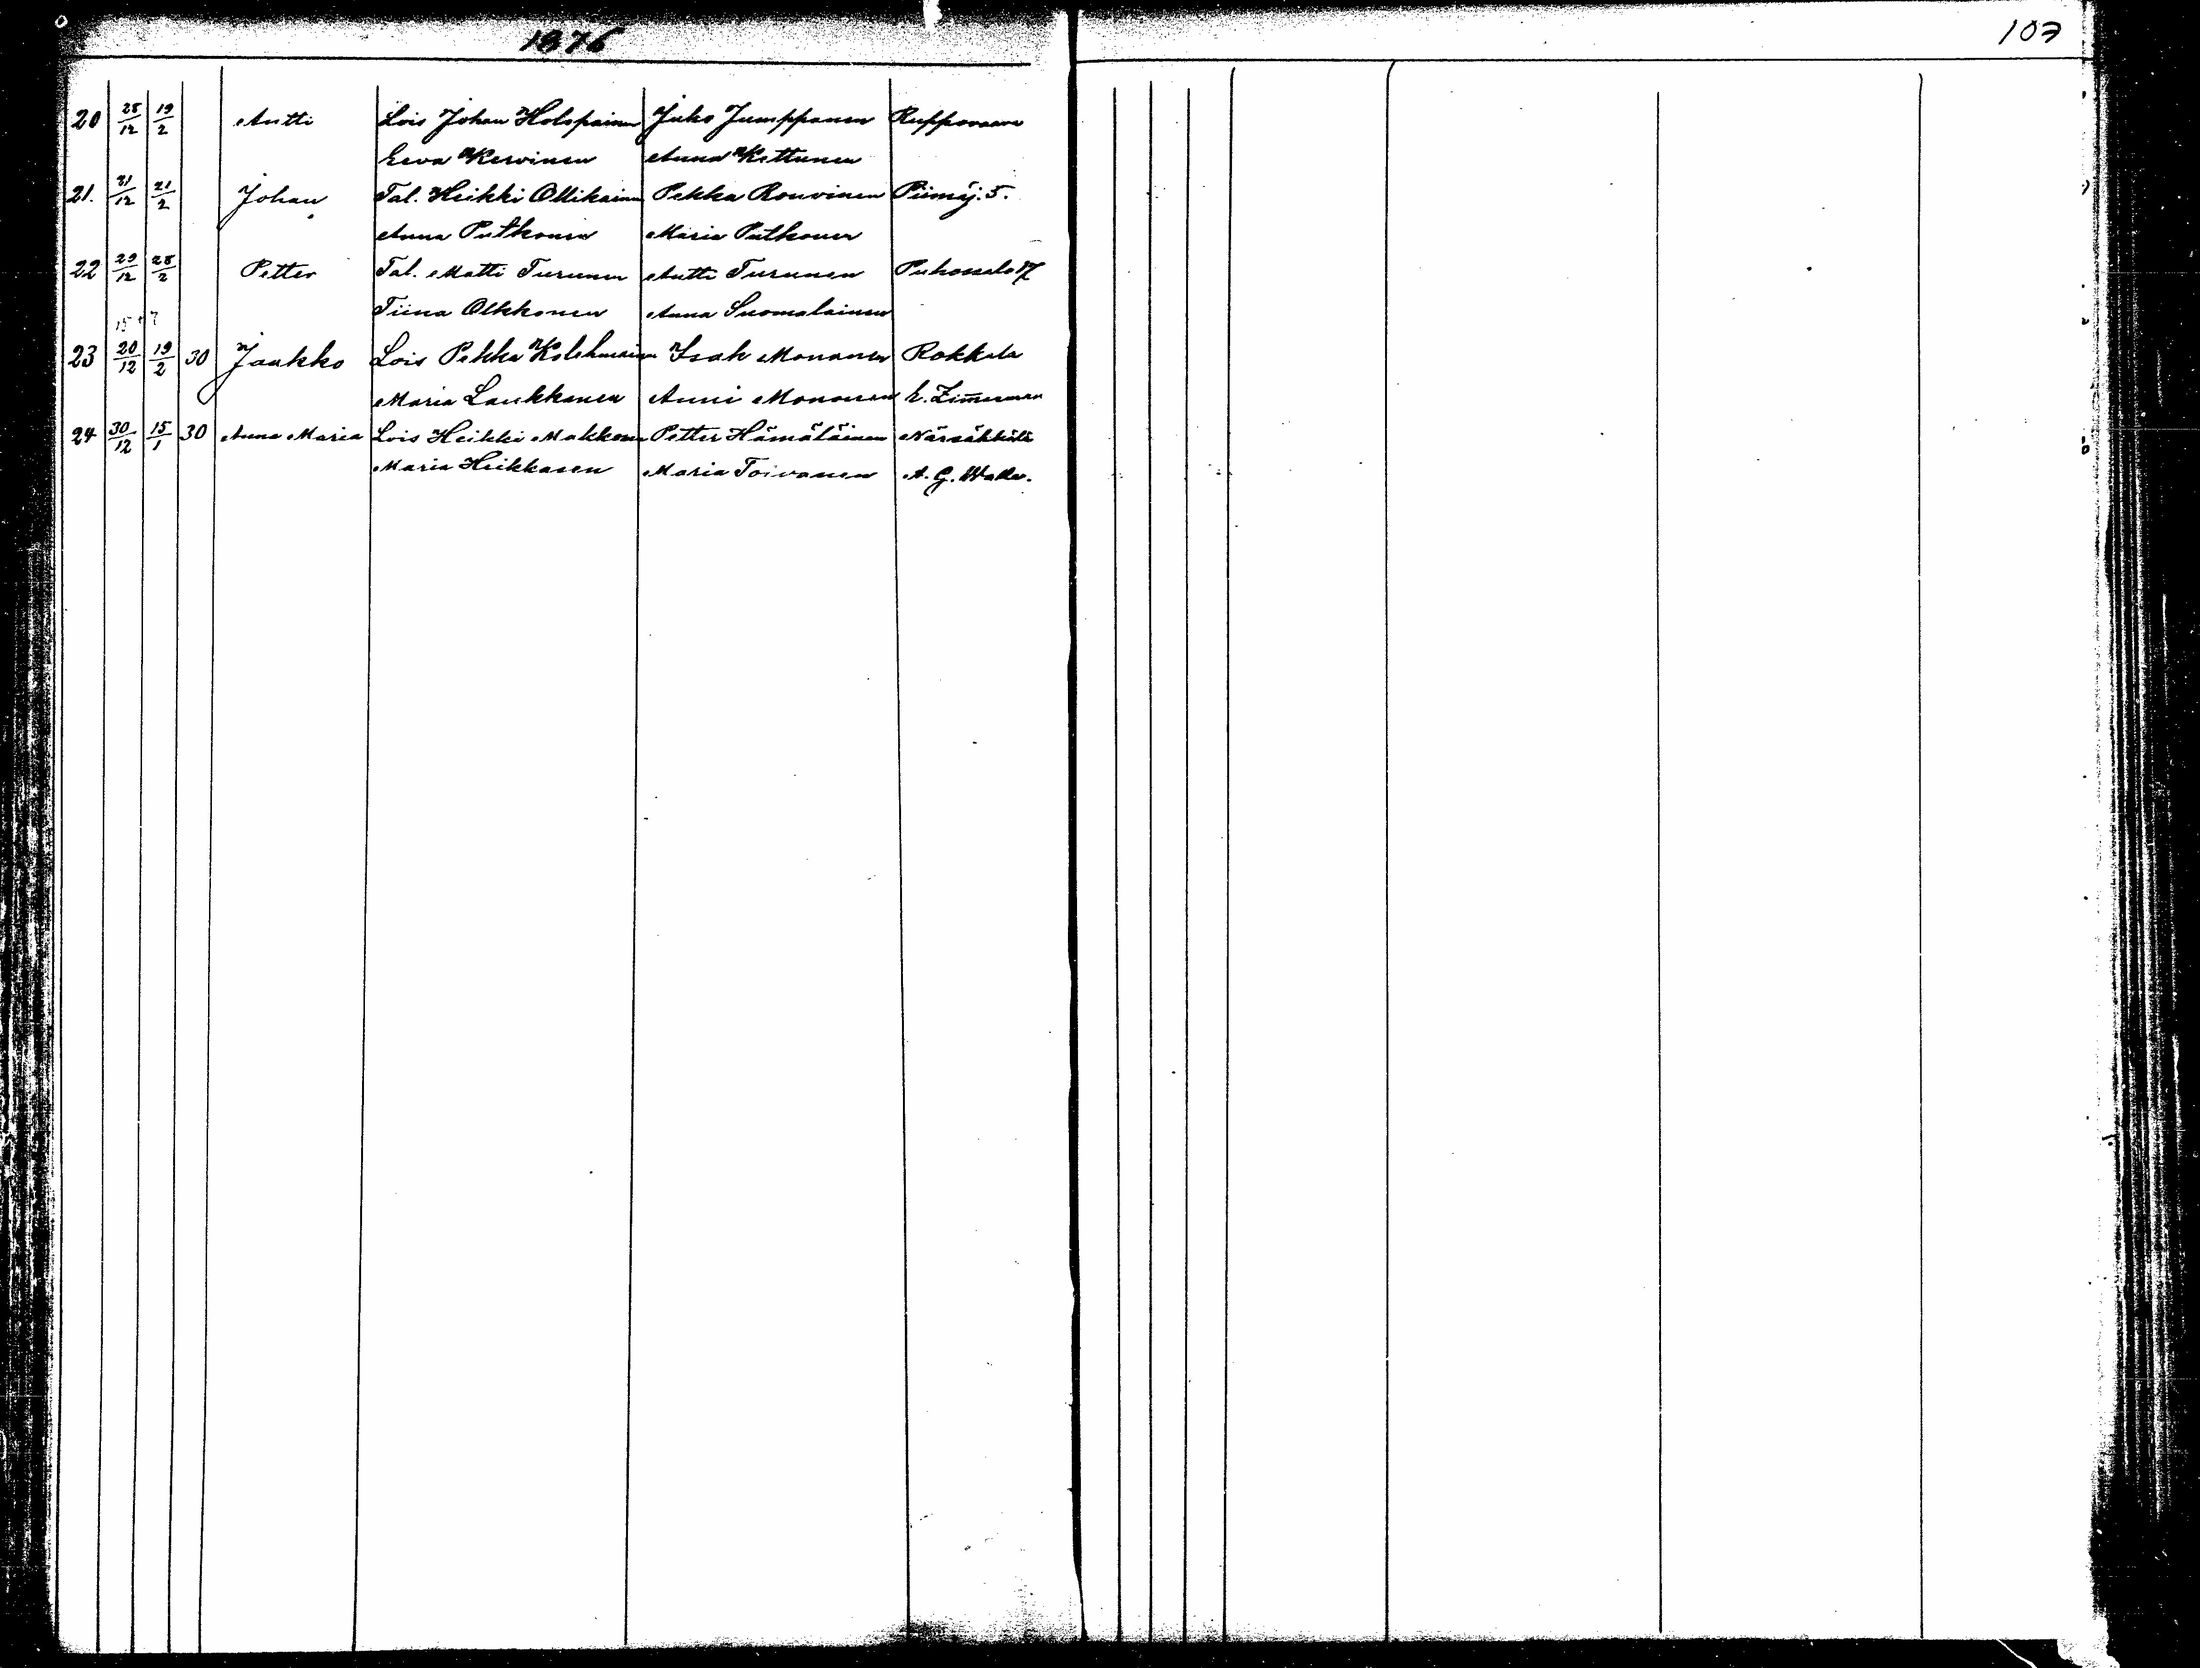 1876
103
20 28/12 19/2 Antti Lois Johan Holopainen Juho Jumppanen Ruppovaara
Eeva Kervinen Anna Kettunen
21. 21/12 21/2 Johan Tal. Heikki Ollikainen Pekka Rouvinen Piimäj. 5.
Anna Putkonen Maria Putkonen
22 29/12 28/2 Petter Tal. Matti Turunen Antti Turunen Puhosselo 17
Tiina Olkkonen Anna Suomalainen
23 20/12 19/2 30 Jaakko Lois Pekka Kolehmainen Isak Mononen Rokkala
Maria Laukkanen Anni Mononen E. Zimerman
24 30/12 15/1 30 Anna Maria Lois Heikki Makkonen Petter Hämäläinen Närsäkkälä
Maria Heikkasen Maria Toivanen A. G. Walle.